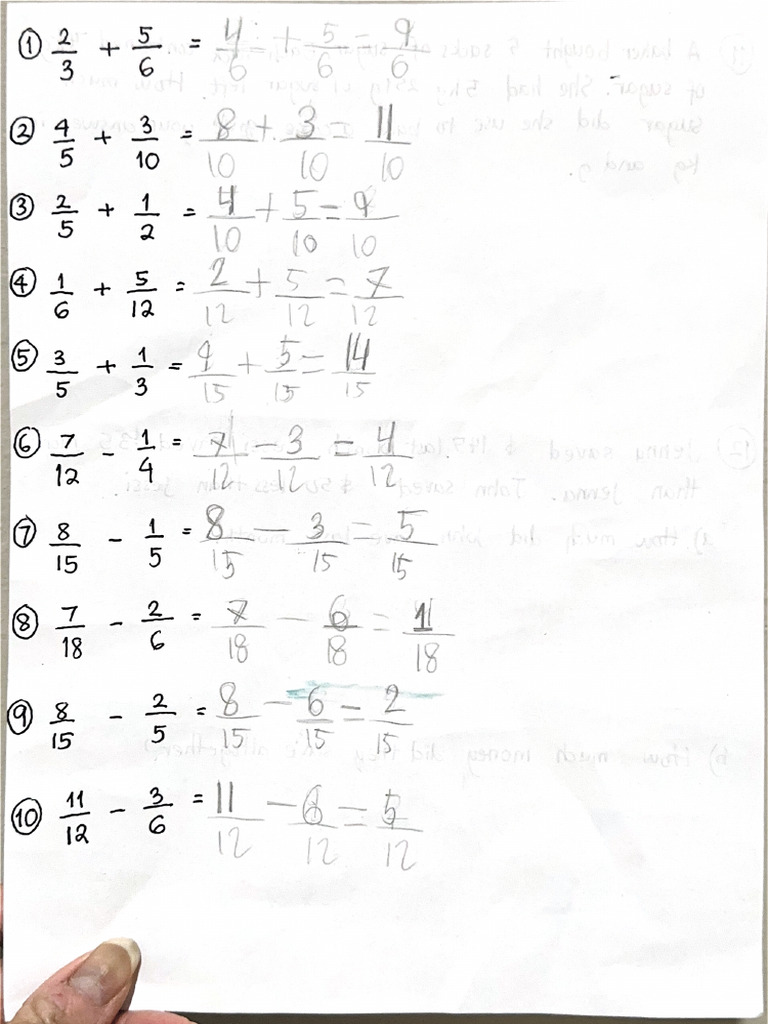 ① 2/3 + 5/6 = 4/6 + 5/6 = 9/6
② 4/5 + 3/10 = 8/10 + 3/10 = 11/10
③ 2/5 + 1/2 = 4/10 + 5/10 = 9/10
④ 1/6 + 5/12 = 2/12 + 5/12 = 7/12
⑤ 3/5 + 1/3 = 9/15 + 5/15 = 14/15
⑥ 7/12 - 1/4 = 7/12 - 3/12 = 4/12
⑦ 8/15 - 1/5 = 8/15 - 3/15 = 5/15
⑧ 7/18 - 2/6 = 7/18 - 6/18 = 1/18
⑨ 8/15 - 2/5 = 8/15 - 6/15 = 2/15
⑩ 11/12 - 3/6 = 11/12 - 6/12 = 5/12